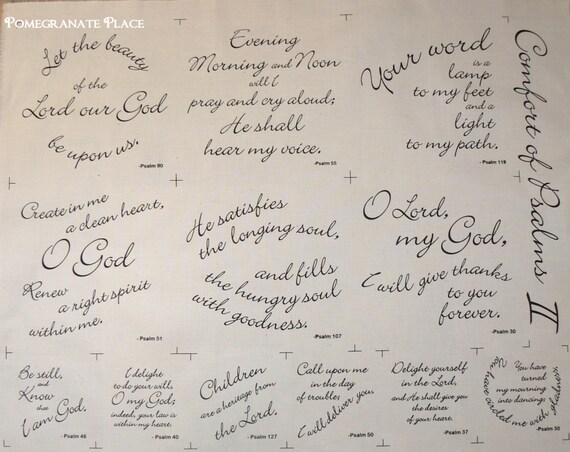 Pomegranate Place
Let the beauty
of the
Lord our God
be upon us.
-Psalm 90
Evening
Morning and Noon
will I
pray and cry aloud;
He shall
hear my voice.
-Psalm 55
Your word
is a
lamp
to my feet
and a
light
to my path.
-Psalm 119
Comfort of Psalms II
Create in me
a clean heart,
O God
Renew
a right spirit
within me.
-Psalm 51
He satisfies
the longing soul,
and fills
the hungry soul
with goodness.
-Psalm 107
O Lord,
my God,
I will give thanks
to you
forever.
-Psalm 30
Be still,
and
Know
that
I am God.
-Psalm 46
I delight
to do your will,
O my God;
indeed, your law is
within my heart.
-Psalm 40
Children
are a heritage from
the Lord.
-Psalm 127
Call upon me
in the day
of trouble;
I will deliver you.
-Psalm 50
Delight yourself
in the Lord,
and He shall give you
the desires
of your heart.
-Psalm 37
You have
turned
my mourning
into dancing;
You have girded me with gladness.
-Psalm 30